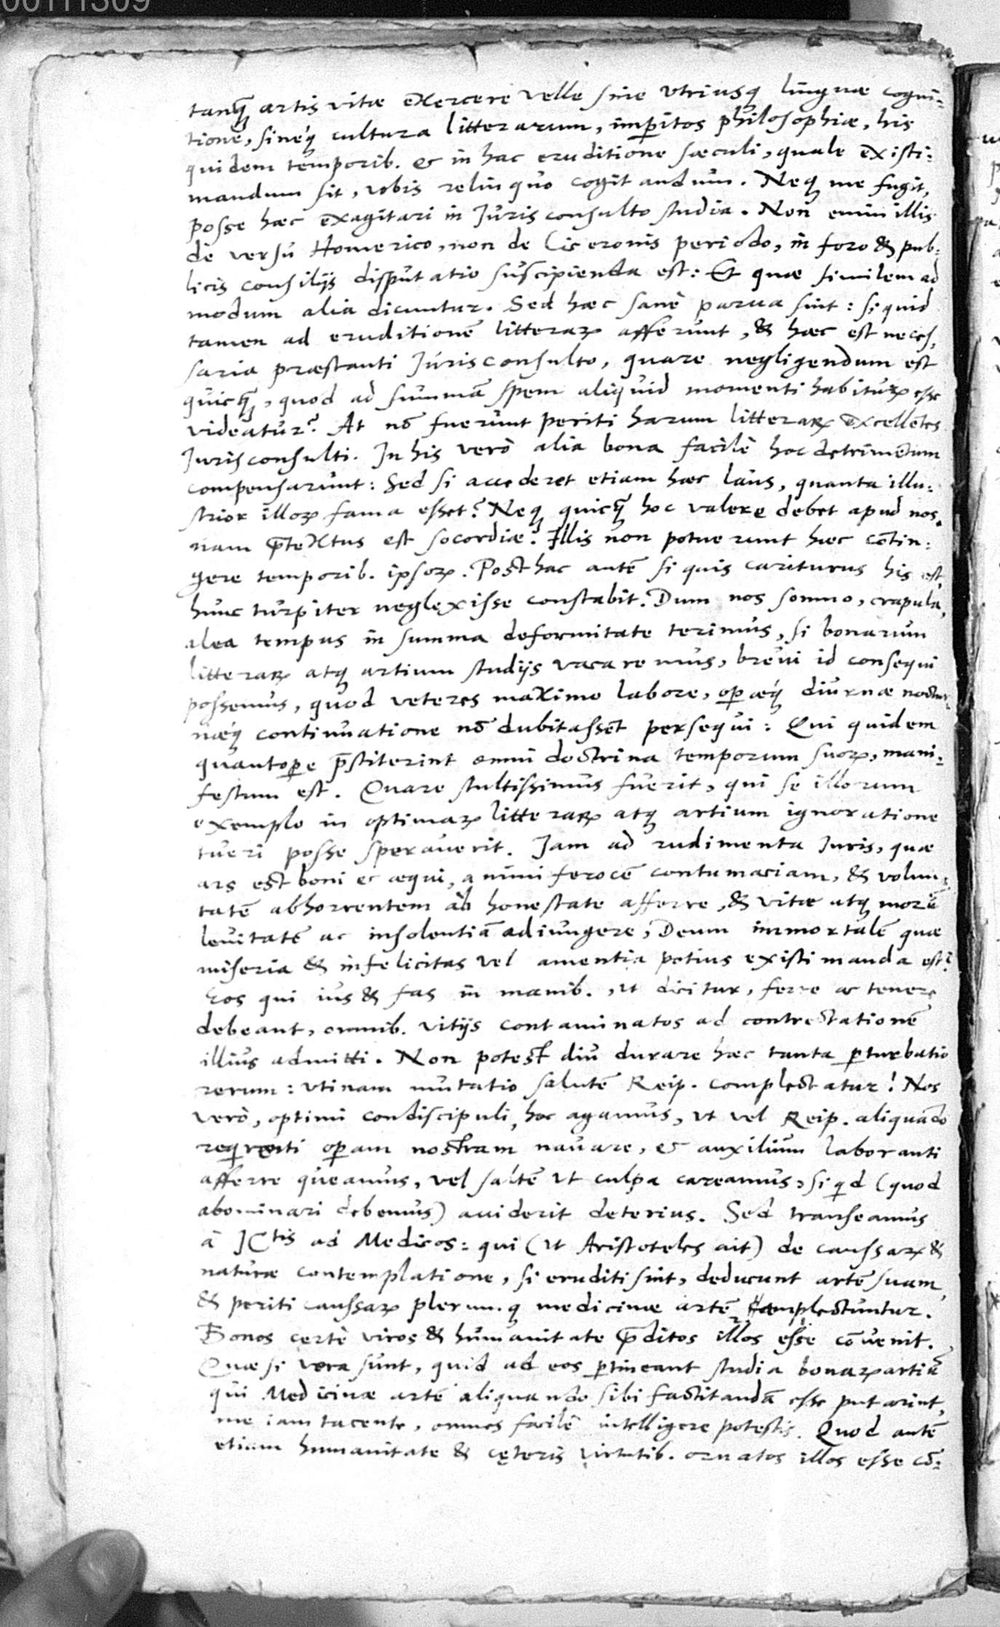 00111309
tanq̃ artis vitæ exercere velle sine utriusq̃ linguæ cogni-
tione, sineq̃ cultura litterarum, imperitos philosophiæ, his
quidem temporib. & in hac eruditione sæculi, quale existi-
mandum sit, vobis relinquo cogitandum. Neq̃ me fugit,
posse hæc exagitari in Jurisconsulto studia. Non enim illis
de versu Homerico, non de Ciceronis periodo, in foro & pub-
licis consilijs disputatio suscipienda est: Et quæ similem ad
modum alia dicuntur. Sed hæc sanè parva sint: si quid
tamen ad eruditionē litterarꝝ afferunt, & hæc est neces-
saria præstanti Jurisconsulto, quare negligendum est
quicq̃, quod ad summā spem aliquid momenti habiturꝝ esse
videatur? At nō fuerunt periti harum litterarꝝ excellētes
Jurisconsulti. In his verò alia bona facilè hoc detrimentum
compensarunt: Sed si accederet etiam hæc laus, quanta illu-
strior illorꝝ fama esset? Neq̃ quicq̃ hoc valere debet apud nos,
nam p̄textus est socordiæ. Illis non potuerunt hæc contin-
gere temporib. ipsorꝝ. Posthac autē si quis cariturus his est,
hunc turpiter neglexisse constabit. Dum nos somno, crapula,
alea tempus in summa deformitate terimus, si bonarum
litterarꝝ atq̃ artium studijs vacaremus, brevi id consequi
possemus, quod veteres maximo labore, operæq̃ diurnæ noctur-
næq̃ continuatione nō dubitassēt persequi: Qui quidem
quantopere p̄stiterint omni doctrina temporum suorꝝ, mani-
festum est. Quare stultissimus fuerit, qui se illorum
exemplo in optimarꝝ litterarꝝ atq̃ artium ignoratione
tueri posse speraverit. Jam ad rudimenta Juris, quæ
ars est boni & æqui, animi ferocē contumaciam, & volun-
tatē abhorrentem ab honestate afferre, & vitæ atq̃ morū
levitatē ac insolentiā adiungere, Deum immortalē quæ
miseria & infelicitas vel amentia potius existimanda est?
Eos qui ius & fas in manib., ut dicitur, ferre ac tenere
debeant, omnib. vitijs contaminatos ad contrectationē
illius admitti. Non potest diu durare hæc tanta perturbatio
rerum: utinam mutatio salutē Reip. complectatur! Nos
verò, optimi condiscipuli, hoc agamus, ut vel Reip. aliquādo
requirenti operam nostram navare, & auxilium laboranti
afferre queamus, vel saltē ut culpa careamus, si qd (quod
abominari debemus) acciderit deterius. Sed transeamus
à JCtis ad Medicos: qui (ut Aristoteles ait) de caussarꝝ &
naturæ contemplatione, si eruditi sint, deducunt artē suam,
& periti caussarꝝ plerumq̃ medicinæ artē complectuntur.
Bonos certè viros & humanitate p̄ditos illos esse cōvenit.
Quæ si vera sunt, quid ad eos pertineant studia bonarꝝ artiū
qui Medicinæ artē aliquando sibi factitandā esse putarint,
me iam tacente, omnes facilè intelligere potestis. Quod autē
etiam humanitate & cęteris virtutib. ornatos illos esse cō-